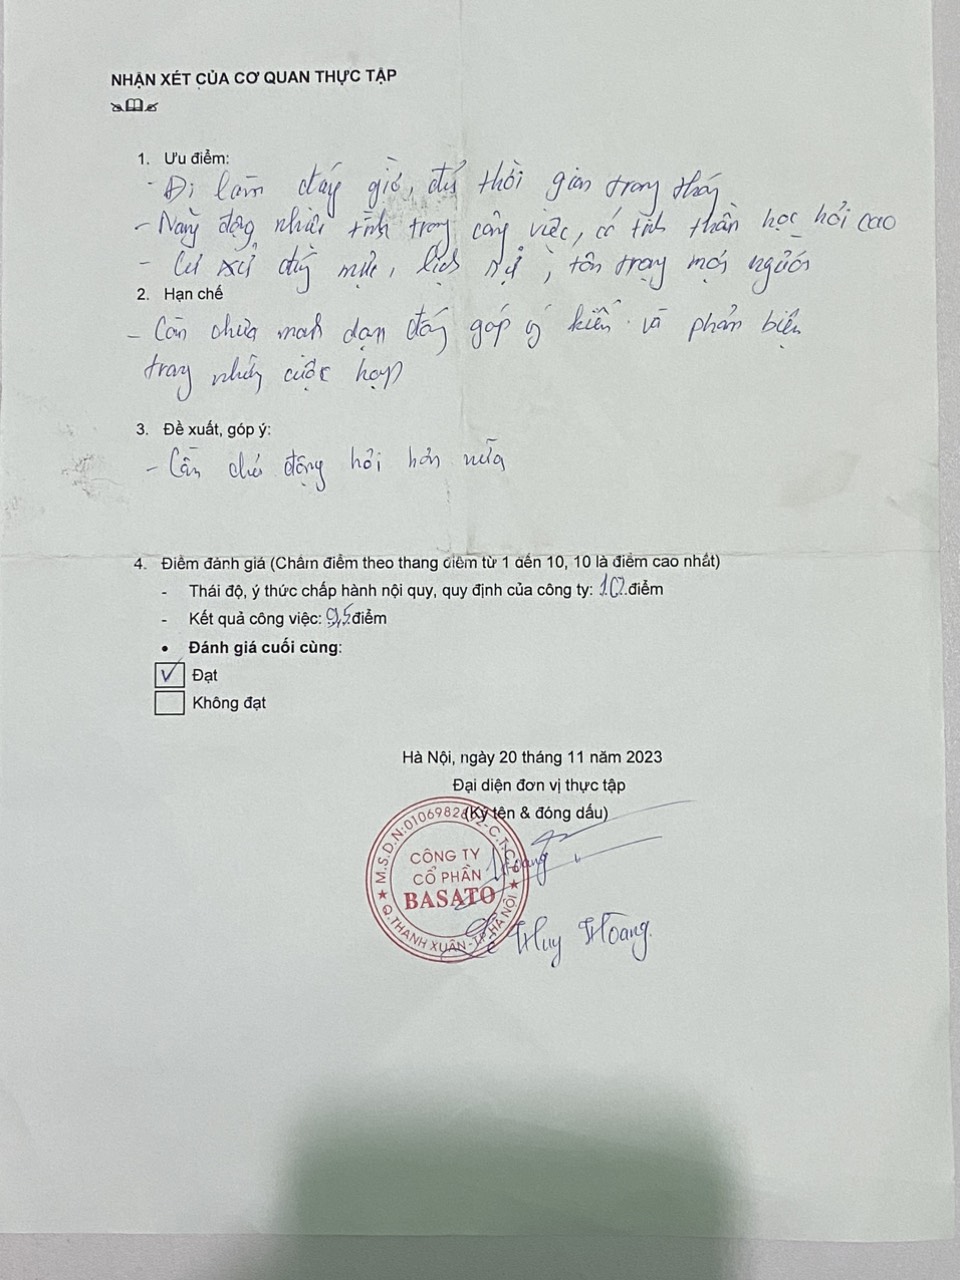 NHẬN XÉT CỦA CƠ QUAN THỰC TẬP
1. Ưu điểm:
- Đi làm đúng giờ, đủ thời gian trong tháng
- Năng động nhiệt tình trong công việc, có tinh thần học hỏi cao
- Cư xử đúng mực, lịch sự, tôn trọng mọi người
2. Hạn chế
- Còn chưa mạnh dạn đóng góp ý kiến và phản biện
trong những cuộc họp
3. Đề xuất, góp ý:
- Cần chủ động hỏi hơn nữa
4. Điểm đánh giá (Chấm điểm theo thang điểm từ 1 đến 10, 10 là điểm cao nhất)
- Thái độ, ý thức chấp hành nội quy, quy định của công ty: 10 điểm
- Kết quả công việc: 9,5 điểm
• Đánh giá cuối cùng:
V Đạt
Không đạt
Hà Nội, ngày 20 tháng 11 năm 2023
Đại diện đơn vị thực tập
(Ký tên & đóng dấu)
M.S.D.N:0106982 C.T.C.P
CÔNG TY
CỔ PHẦN
BASATO
Q.THANH XUÂN-TP.HÀ NỘI
Hoang
Lê Huy Hoàng.